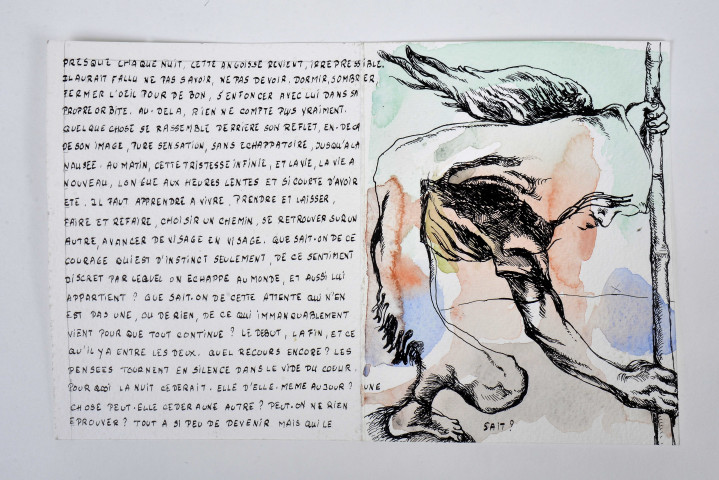 PRESQUE CHAQUE NUIT, CETTE ANGOISSE REVIENT, IRREPRESSIBLE.
IL AURAIT FALLU NE PAS SAVOIR, NE PAS DEVOIR. DORMIR, SOMBRER,
FERMER L'OEIL POUR DE BON, S'ENFONCER AVEC LUI DANS SA
PROPRE ORBITE. AU-DELA, RIEN NE COMPTE PLUS VRAIMENT.
QUELQUE CHOSE SE RASSEMBLE DERRIERE SON REFLET, EN-DECA
DE SON IMAGE, PURE SENSATION, SANS ECHAPPATOIRE, JUSQU'A LA
NAUSEE. AU MATIN, CETTE TRISTESSE INFINIE, ET LA VIE, LA VIE A
NOUVEAU, LONGUE AUX HEURES LENTES ET SI COURTE D'AVOIR
ETE. IL FAUT APPRENDRE A VIVRE, PRENDRE ET LAISSER,
FAIRE ET REFAIRE, CHOISIR UN CHEMIN, SE RETROUVER SUR UN
AUTRE, AVANCER DE VISAGE EN VISAGE. QUE SAIT-ON DE CE
COURAGE QUI EST D'INSTINCT SEULEMENT, DE CE SENTIMENT
DISCRET PAR LEQUEL ON ECHAPPE AU MONDE, ET AUSSI LUI
APPARTIENT? QUE SAIT-ON DE CETTE ATTENTE QUI N'EN
EST PAS UNE, OU DE RIEN, DE CE QUI IMMANQUABLEMENT
VIENT POUR QUE TOUT CONTINUE? LE DEBUT, LA FIN, ET CE
QU'IL Y A ENTRE LES DEUX. QUEL RECOURS ENCORE? LES
PENSEES TOURNENT EN SILENCE DANS LE VIDE DU COEUR.
POURQUOI LA NUIT CEDERAIT-ELLE D'ELLE-MEME AU JOUR? UNE
CHOSE PEUT-ELLE CEDER A UNE AUTRE? PEUT-ON NE RIEN
EPROUVER? TOUT A SI PEU DE DEVENIR MAIS QUI LE
SAIT?